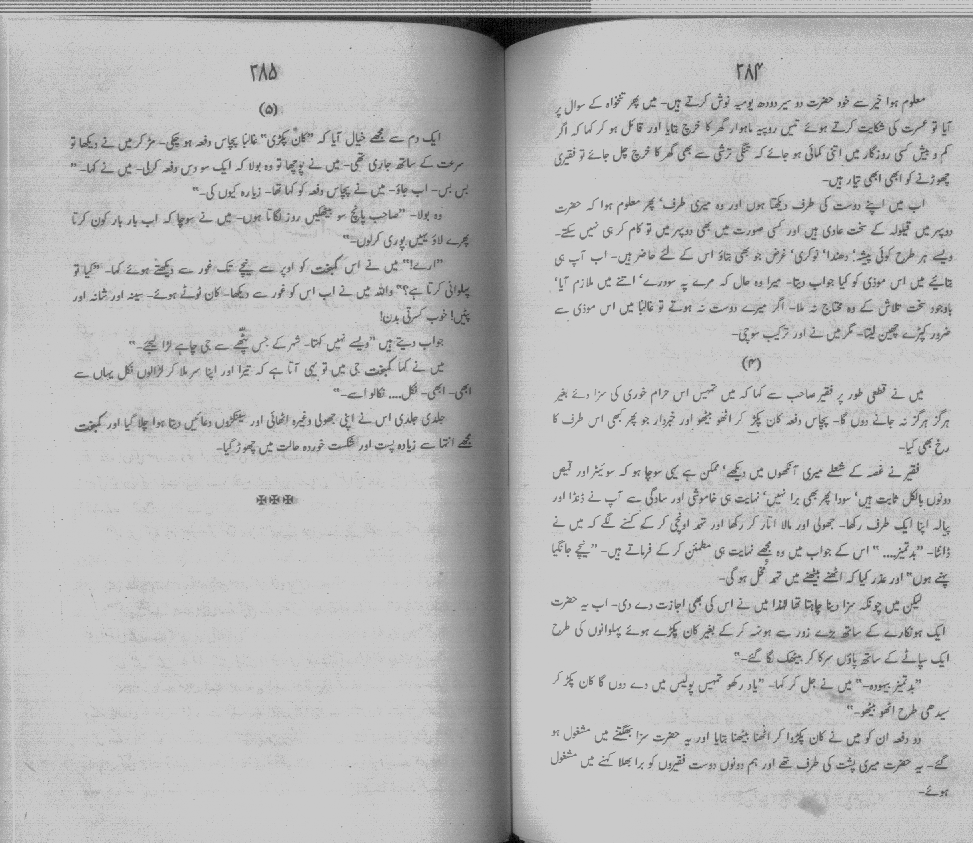 ۳۸۴
معلوم ہوا خیر سے خود حضرت دو سیر دودھ یومیہ نوش کرتے ہیں۔ میں پھر تنخواہ کے سوال پر
آیا تو عسرت کی شکایت کرتے ہوئے تیس روپیہ ماہوار گھر کا خرچ بتایا اور قائل ہو کر کہا کہ اگر
کم و بیش کسی روزگار میں اتنی کمائی ہو جائے کہ تنگی ترشی سے بھی گھر کا خرچ چل جائے تو فقیری
چھوڑنے کو ابھی ابھی تیار ہیں۔
اب میں اپنے دوست کی طرف دیکھتا ہوں اور وہ میری طرف‘ پھر معلوم ہوا کہ حضرت
دوپہر میں قیلولہ کے سخت عادی ہیں اور کسی صورت میں بھی دوپہر میں تو کام کر ہی نہیں سکتے۔
ویسے ہر طرح کوئی پیشہ‘ دھندا‘ نوکری‘ غرض جو بھی بتاؤ اس کے لئے حاضر ہیں۔ اب آپ ہی
بتائیے میں اس موذی کو کیا جواب دیتا۔ میرا وہ حال کہ مرے پہ سو درے‘ اتنے میں ملازم آیا‘
باوجود سخت تلاش کے وہ محتاج نہ ملا۔ اگر میرے دوست نہ ہوتے تو غالباً میں اس موذی سے
ضرور کپڑے چھین لیتا۔ مگر میں نے اور ترکیب سوچی۔
(۴)
میں نے قطعی طور پر فقیر صاحب سے کہا کہ میں تمہیں اس حرام خوری کی سزا دئے بغیر
ہرگز ہرگز نہ جانے دوں گا۔ پچاس دفعہ کان پکڑ کر اٹھو بیٹھو اور خبردار جو پھر کبھی اس طرف کا
رخ بھی کیا۔
فقیر نے غصہ کے شعلے میری آنکھوں میں دیکھے‘ ممکن ہے یہی سوچا ہو کہ سوئیٹر اور قمیص
دونوں بالکل ثابت ہیں‘ سودا پھر بھی برا نہیں‘ نہایت ہی خاموشی اور سادگی سے آپ نے ڈنڈا اور
پیالہ اپنا ایک طرف رکھا۔ جھولی اور مالا اتار کر رکھا اور تہمد اونچی کر کے کہنے لگے کہ میں نے
ڈانٹا۔ ”بدتمیز.... “ اس کے جواب میں وہ مجھے نہایت ہی مطمئن کر کے فرماتے ہیں۔ ”نیچے جانگیا
پہنے ہوں“ اور عذر کیا کہ اٹھنے بیٹھنے میں تہمد مخل ہو گی۔
لیکن میں چونکہ سزا دینا چاہتا تھا لہٰذا میں نے اس کی بھی اجازت دے دی۔ اب یہ حضرت
ایک ہونکارے کے ساتھ بڑے زور سے ہونہہ کر کے بغیر کان پکڑے ہوئے پہلوانوں کی طرح
ایک سپاٹے کے ساتھ پاؤں سرکا کر بیٹھک لگا گئے۔“
”بدتمیز بیہودہ۔“ میں نے جل کر کہا۔ ”یاد رکھو تمہیں پولیس میں دے دوں گا کان پکڑ کر
سیدھی طرح اٹھو بیٹھو۔“
دو دفعہ ان کو میں نے کان پکڑوا کر اٹھنا بیٹھنا بتایا اور یہ حضرت سزا بھگتنے میں مشغول ہو
گئے۔ یہ حضرت میری پشت کی طرف تھے اور ہم دونوں دوست فقیروں کو برا بھلا کہنے میں مشغول
ہوئے۔
۳۸۵
(۵)
ایک دم سے مجھے خیال آیا کہ ”کان پکڑی“ غالباً پچاس دفعہ ہو چکی۔ مڑ کر میں نے دیکھا تو
سرعت کے ساتھ جاری تھی۔ میں نے پوچھا تو وہ بولا کہ ایک سو دس دفعہ کرلی۔ میں نے کہا۔ ”
بس بس۔ اب جاؤ۔ میں نے پچاس دفعہ کو کہا تھا۔ زیادہ کیوں کی۔“
وہ بولا۔ ”صاحب پانچ سو بیٹھکیں روز لگاتا ہوں۔ میں نے سوچا کہ اب بار بار کون کرتا
پھرے لاؤ یہیں پوری کرلوں۔“
”ارے!“ میں نے اس کمبخت کو اوپر سے نیچے تک غور سے دیکھتے ہوئے کہا۔ ”کیا تو
پہلوانی کرتا ہے؟“ واللہ میں نے اب اس کو غور سے دیکھا۔ کان ٹوٹے ہوئے۔ سینہ اور شانہ اور
پٹیں! خوب کسرتی بدن!
جواب دیتے ہیں ”ویسے نہیں کہتا۔ شہر کے جس پٹھے سے جی چاہے لڑا لیجئے۔“
میں نے کہا کمبخت جی میں تو یہی آتا ہے کہ تیرا اور اپنا سر ملا کر لڑالوں نکل یہاں سے
ابھی۔ ابھی۔ نکل.... نکالو اسے۔“
جلدی جلدی اس نے اپنی جھولی وغیرہ اٹھائی اور سینکڑوں دعائیں دیتا ہوا چلا گیا اور کمبخت
مجھے انتہا سے زیادہ پست اور شکست خوردہ حالت میں چھوڑ گیا۔